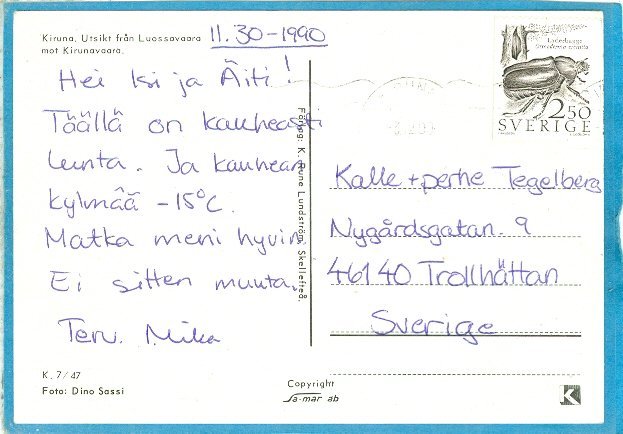 Kiruna. Utsikt från Luossavaara
mot Kirunavaara.
11.30-1990
Hei Isi ja Äiti!
Täällä on kauheasti
lunta. Ja kauhean
kylmää -15°C.
Matka meni hyvin.
Ei sitten muuta.
Terv. Mika
K. 7/47
Foto: Dino Sassi
Förlag: K. Rune Lundström, Skellefteå.
Copyright
Sa-mar ab
2.50
SVERIGE
Kalle + perhe Tegelberg
Nygårdsgatan. 9
46140 Trollhättan
Sverige
K